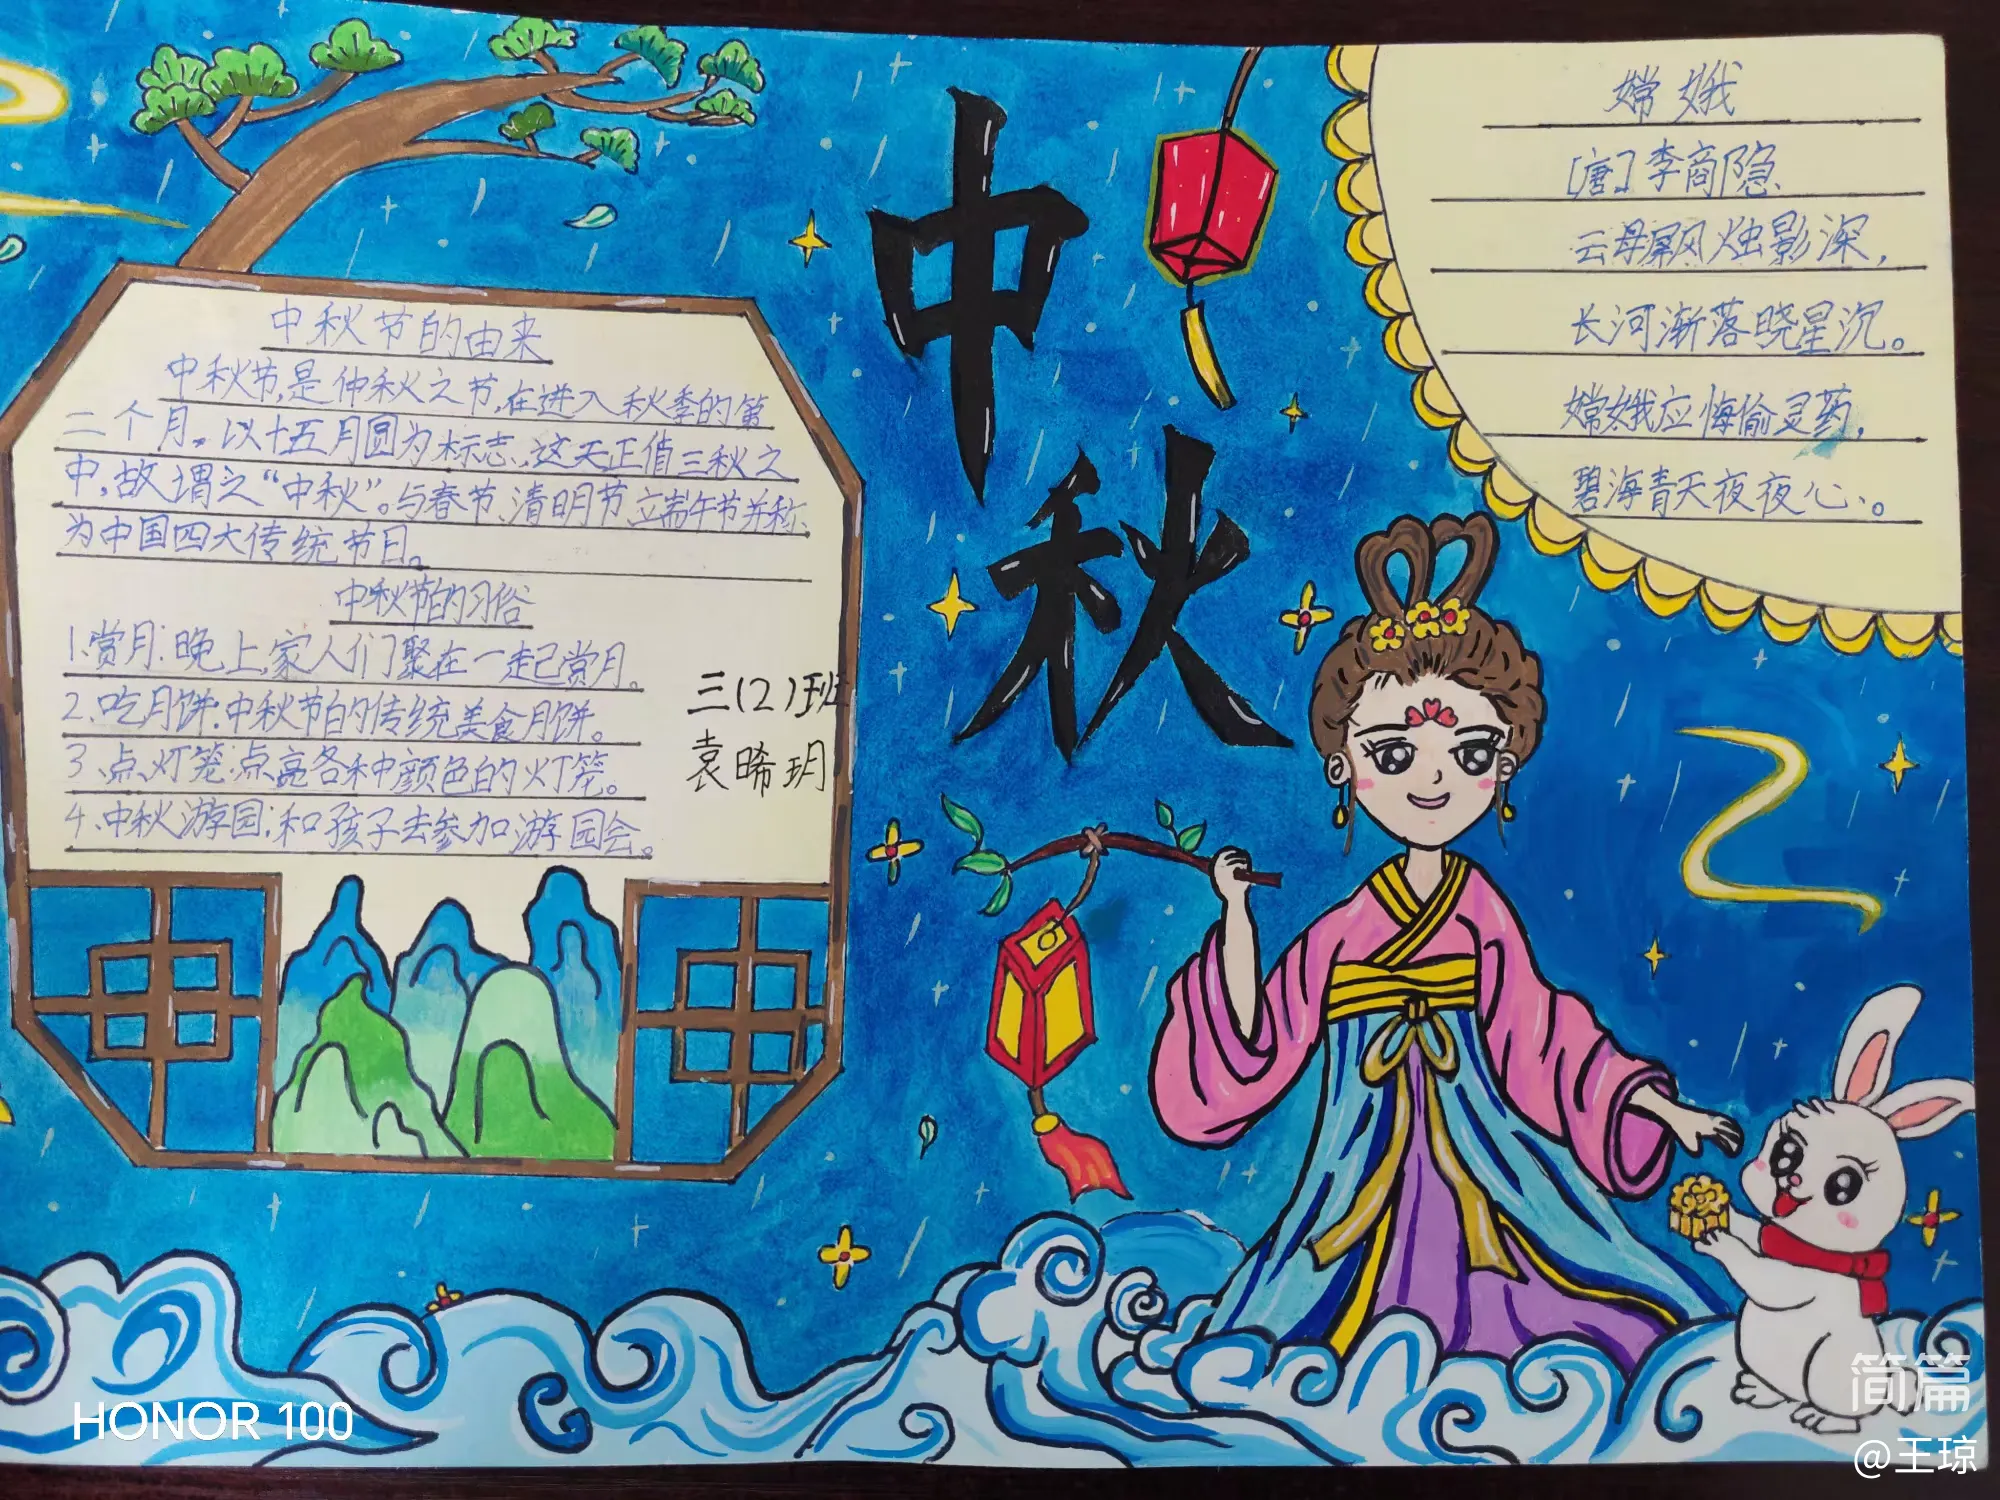 中秋节的由来
中秋节,是仲秋之节,在进入秋季的第
二个月。以十五月圆为标志,这天正值三秋之
中,故谓之“中秋”。与春节、清明节、端午节并称
为中国四大传统节日。
中秋节的习俗
1.赏月:晚上,家人们聚在一起赏月。
2.吃月饼:中秋节的传统美食月饼。
3、点灯笼:点亮各种颜色的灯笼。
4、中秋游园:和孩子去参加游园会。
三(2)班
袁晞玥
中
秋
嫦娥
[唐]李商隐
云母屏风烛影深,
长河渐落晓星沉。
嫦娥应悔偷灵药,
碧海青天夜夜心。
HONOR 100
简篇
@王琼